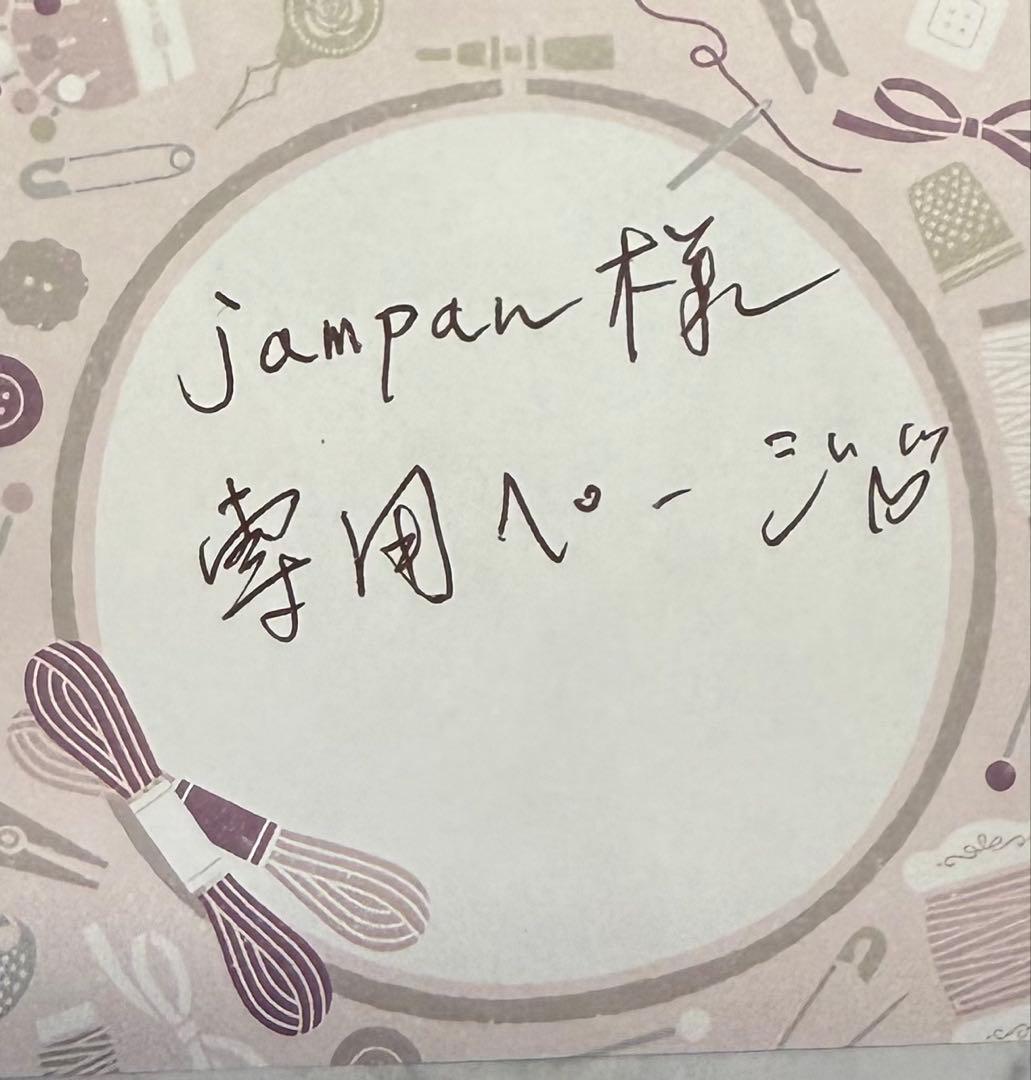 jampan 様
専用ページ